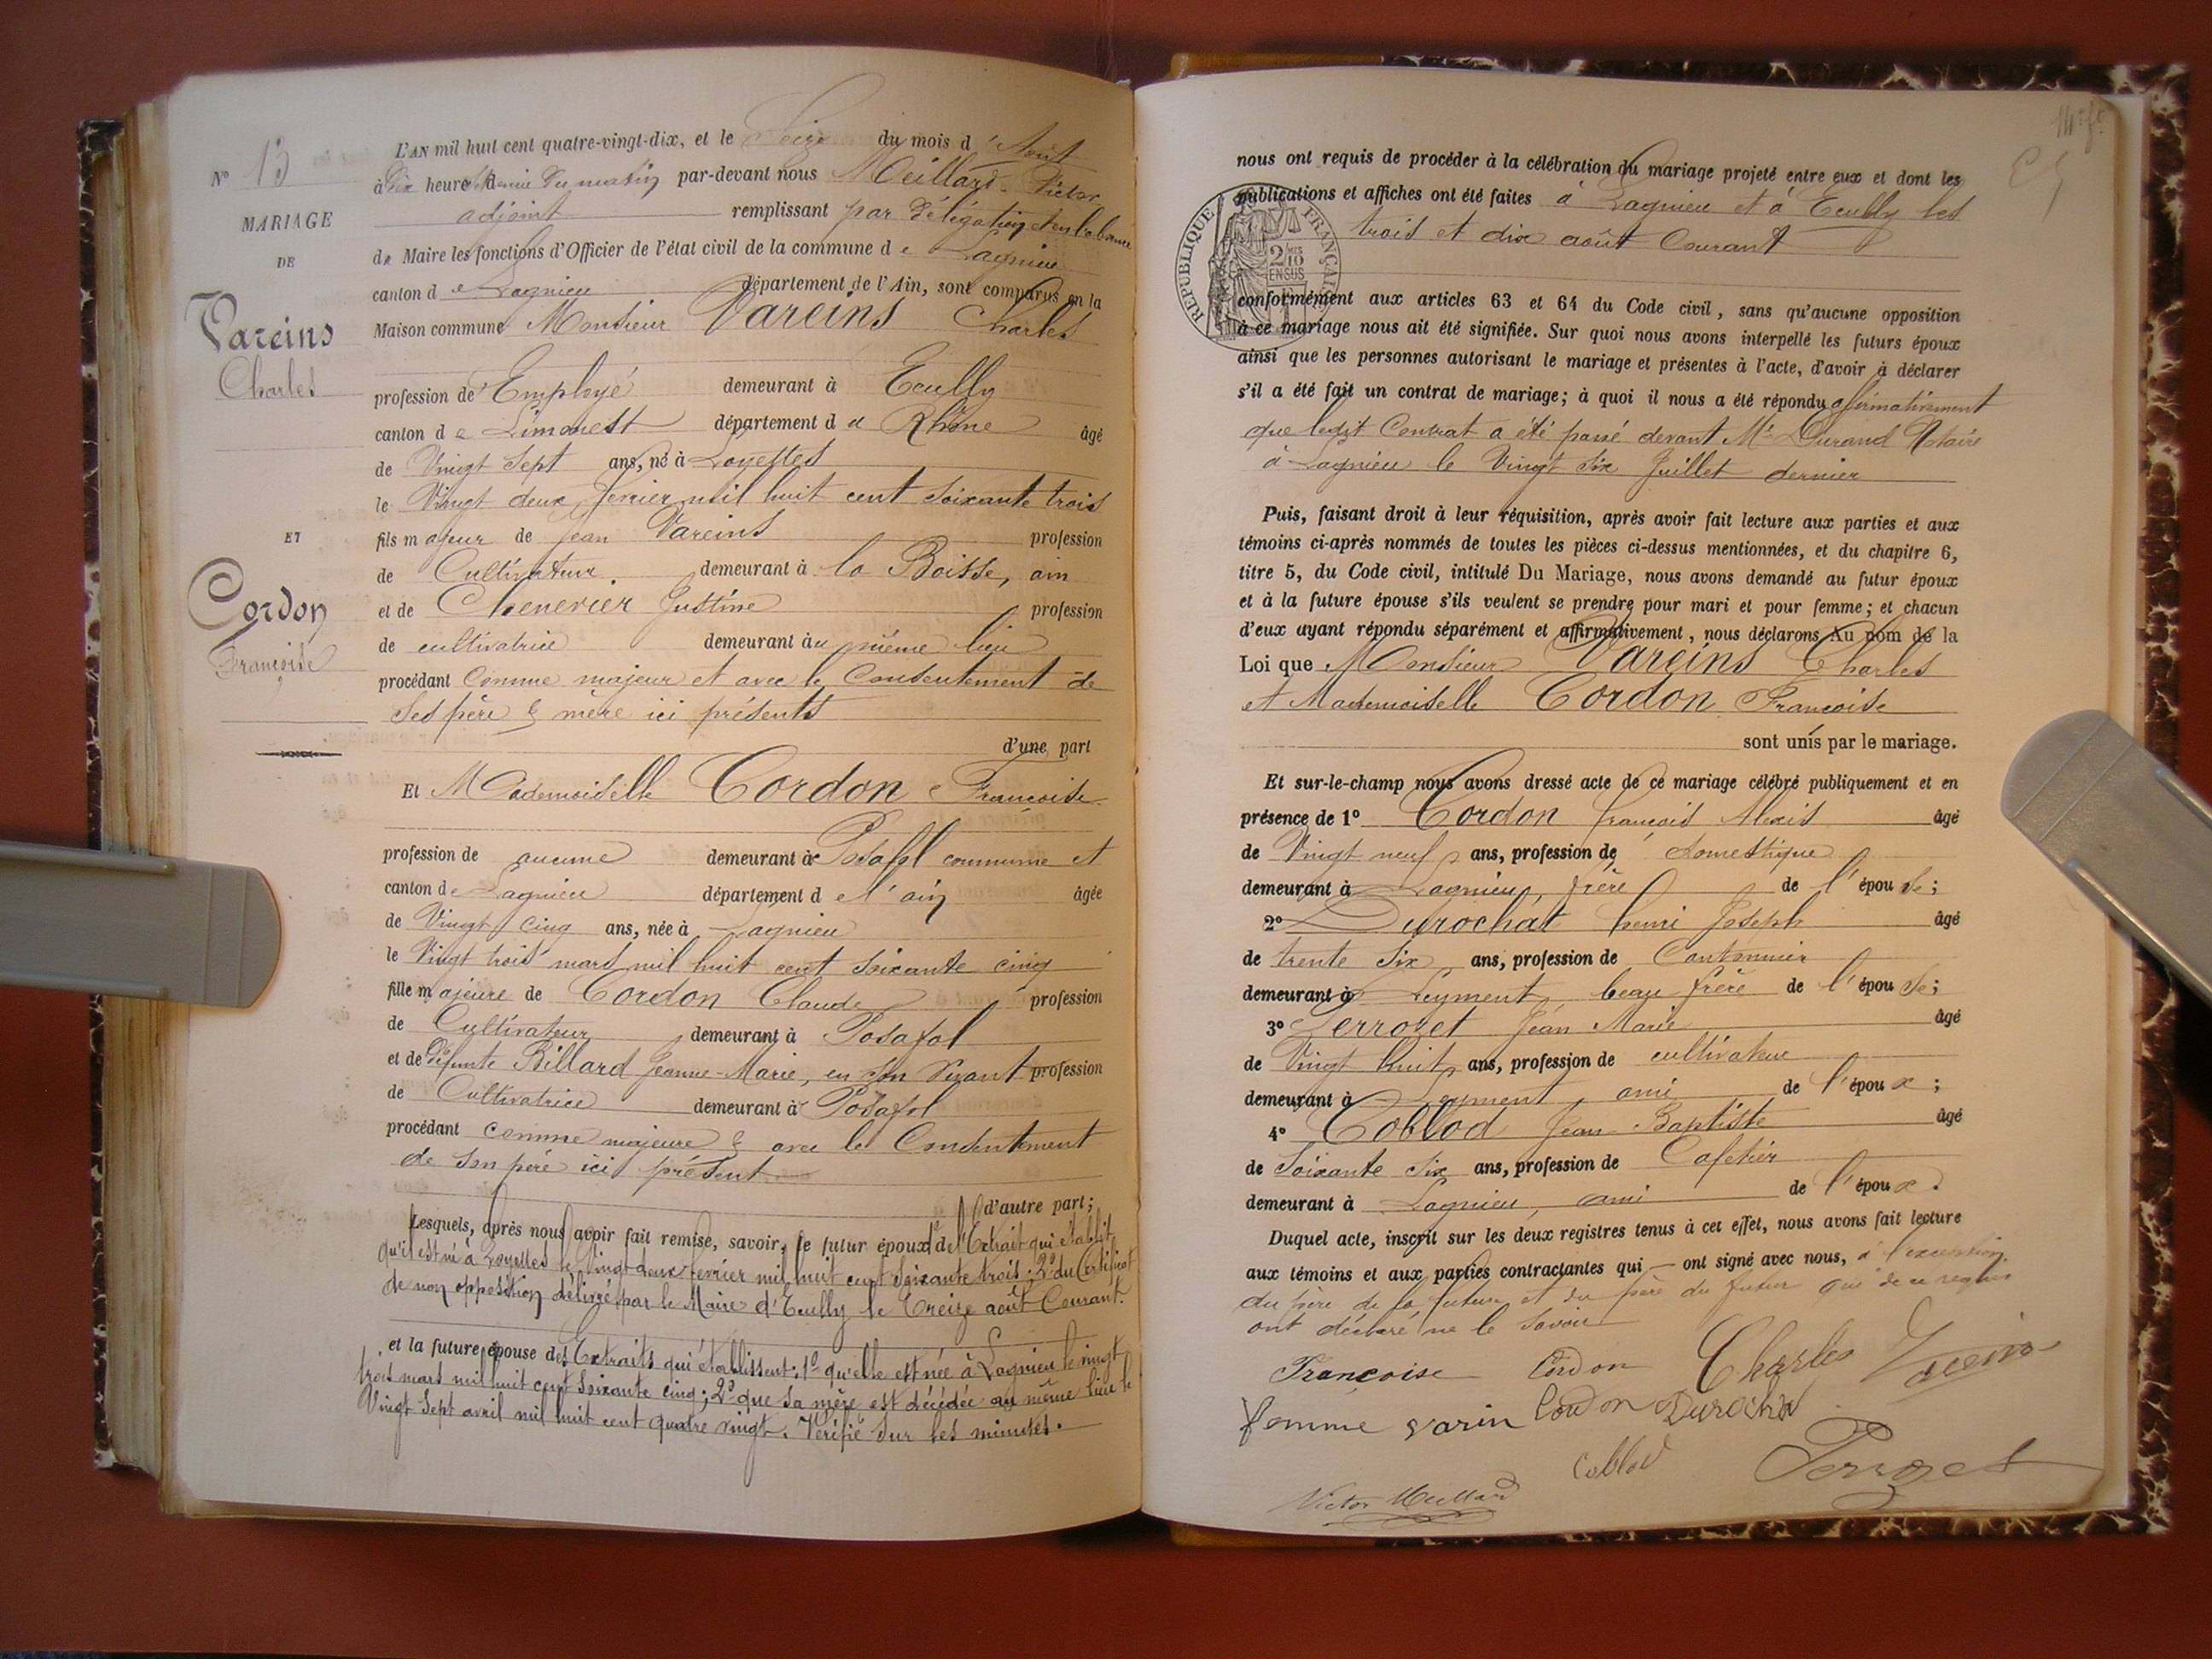 N° 13
MARIAGE
DE
Vareins
Charles
ET
Cordon
Françoise
L'AN mil huit cent quatre-vingt-dix, et le Seize du mois d'Août
à dix heures & demie du matin par-devant nous Meillard Victor
adjoint remplissant par délégation et en l'absence
du Maire les fonctions d'Officier de l'état civil de la commune de Lagnieu
canton de Lagnieu département de l'Ain, sont comparus en la
Maison commune Monsieur Vareins Charles
profession d'Employé demeurant à Ecully
canton de Limonest département du Rhône âgé
de Vingt sept ans, né à Loyettes
le Vingt deux février mil huit cent soixante trois
fils majeur de Jean Vareins profession
de Cultivateur demeurant à la Boisse, ain
et de Chenevier Justine profession
de cultivatrice demeurant au même lieu
procédant Comme majeur et avec le Consentement de
ses père & mère ici présents
d'une part
Et Mademoiselle Cordon Françoise
profession de aucune demeurant à Posafol commune et
canton de Lagnieu département de l'ain âgée
de Vingt cinq ans, née à Lagnieu
le Vingt trois mars mil huit cent soixante cinq
fille majeure de Cordon Claude profession
de Cultivateur demeurant à Posafol
et de défunte Billard Jeanne-Marie, en son vivant profession
de Cultivatrice demeurant à Posafol
procédant comme majeure & avec le Consentement
de son père ici présent
d'autre part;
Lesquels, après nous avoir fait remise, savoir, le futur époux de l'Extrait qui établit
qu'il est né à Loyettes le Vingt deux février mil huit cent soixante trois; 2° du Certificat
de non opposition délivré par le Maire d'Ecully le treize août Courant.
et la future épouse des Extraits qui établissent: 1° qu'elle est née à Lagnieu le vingt
trois mars mil huit cent soixante cinq; 2° que sa mère est décédée au même lieu le
Vingt sept avril mil huit cent quatre vingt. Vérifié sur les minutes.
nous ont requis de procéder à la célébration du mariage projeté entre eux et dont les
publications et affiches ont été faites à Lagnieu et à Ecully les
trois et dix août Courant
RÉPUBLIQUE FRANÇAISE
2/10
EN SUS
conformément aux articles 63 et 64 du Code civil, sans qu'aucune opposition
à ce mariage nous ait été signifiée. Sur quoi nous avons interpellé les futurs époux
ainsi que les personnes autorisant le mariage et présentes à l'acte, d'avoir à déclarer
s'il a été fait un contrat de mariage; à quoi il nous a été répondu affirmativement
que ledit Contrat a été passé devant Me Durand Notaire
à Lagnieu le Vingt six Juillet dernier
Puis, faisant droit à leur réquisition, après avoir fait lecture aux parties et aux
témoins ci-après nommés de toutes les pièces ci-dessus mentionnées, et du chapitre 6,
titre 5, du Code civil, intitulé Du Mariage, nous avons demandé au futur époux
et à la future épouse s'ils veulent se prendre pour mari et pour femme; et chacun
d'eux ayant répondu séparément et affirmativement, nous déclarons Au nom de la
Loi que Monsieur Vareins Charles
et Mademoiselle Cordon Françoise
sont unis par le mariage.
Et sur-le-champ nous avons dressé acte de ce mariage célébré publiquement et en
présence de 1° Cordon François Alexis âgé
de Vingt neuf ans, profession de domestique
demeurant à Lagnieu, frère de l'épouse;
2° Durochat henri Joseph âgé
de trente six ans, profession de Cantonnier
demeurant à Leyment, beau frère de l'épouse;
3° Perrozet Jean Marie âgé
de Vingt huit ans, profession de cultivateur
demeurant à Leyment, ami de l'époux;
4° Coblod Jean-Baptiste âgé
de Soixante six ans, profession de Cafetier
demeurant à Lagnieu, ami de l'époux.
Duquel acte, inscrit sur les deux registres tenus à cet effet, nous avons fait lecture
aux témoins et aux parties contractantes qui — ont signé avec nous, à l'exception
du père de la future et du père du futur qui de ce requis
ont déclaré ne le savoir
Françoise Cordon Charles Vareins
femme varin Cordon Durochat
Coblod Perrozet
Victor Meillard